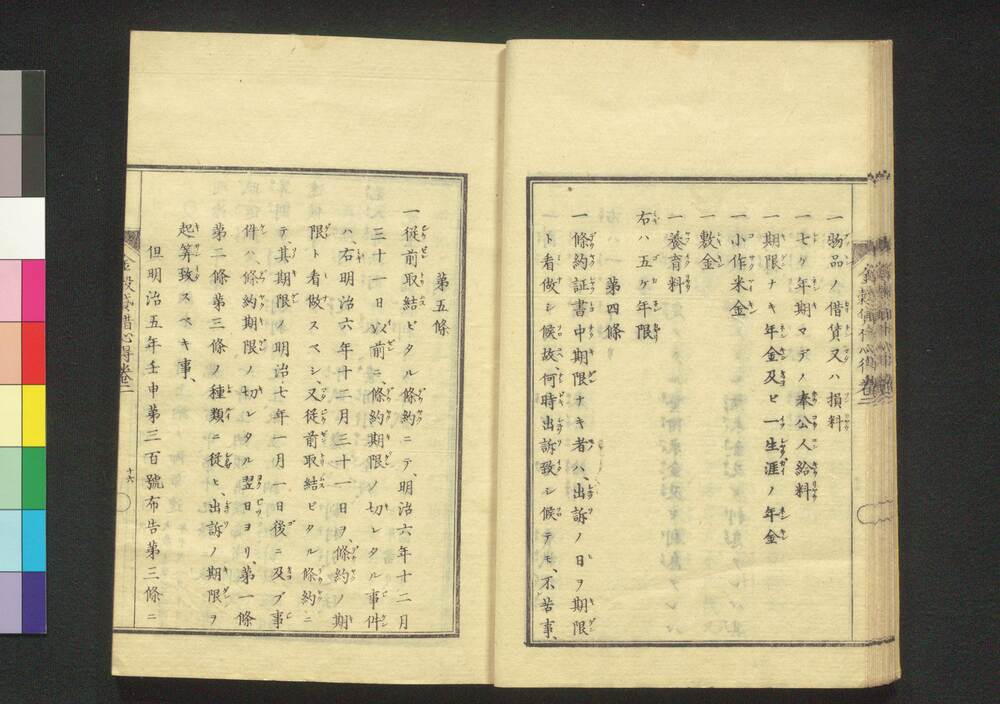 一物品ノ借賃又ハ損料
一七ケ年期マデノ奉公人給料
一期限ナキ年金及ビ一生涯ノ年金
一小作米金
一敷金
一養育料
右ハ五ケ年限
第四條
一條約証書中期限ナキ者ハ、出訴ノ日ヲ期限
ト看做シ候故、何時出訴致シ候テモ、不苦事、
第五條
一從前取結ビタル條約ニテ、明治六年十二月
三十一日以前ニ、條約期限ノ切レタル事件
ハ、右明治六年十二月三十一日ヲ、條約ノ期
限ト看做スベシ、又從前取結ビタル條約ニ
テ、其期限ノ明治七年一月一日後ニ及ブ事
件ハ、條約期限ノ切レタル翌日ヨリ、第一條
第二條第三條ノ種類ニ從ヒ、出訴ノ期限ヲ
起筭致スベキ事、
但明治五年壬申第三百號布告第三條ニ
金穀貸借心得 卷二
十六